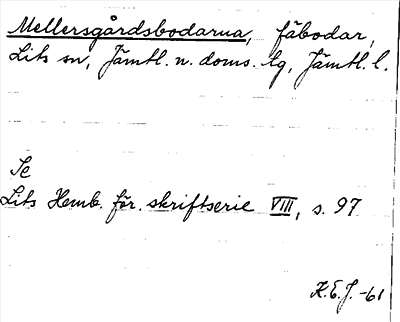 Mellersgårdsbodarna, fäbodar,
Lits sn, Jämtl. n. doms. lg, Jämtl. l.
Se
Lits Hemb. för. skriftserie VIII, s. 97
K.E.J. -61